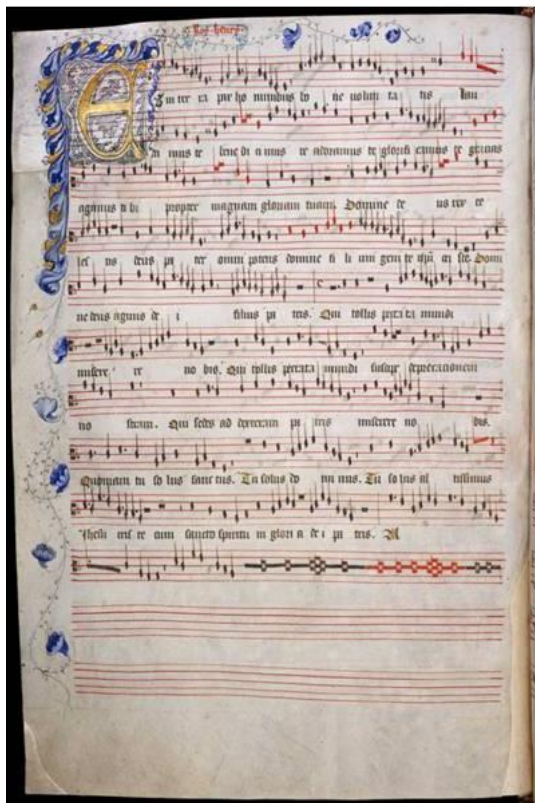 Roy henry
Et in ter ra pax ho minibus bo ne uolun ta tis lau
da mus te bene di cimus te adoramus te glorifi camus te gracias
agimus ti bi propter magnam gloriam tuam. Domine de us rex ce
les tis deus pa ter omni potens domine fi li uni geni te ihu ste. Domi
ne deus agnus de i filius pa tris. Qui tollis peccata mundi
misere re no bis. Qui tollis peccata mundi suscipe deprecacionem
no stram. Qui sedes ad dexteram pa tris miserere no bis.
Quoniam tu so lus sanc tus. Tu solus do mi nus. Tu so lus al tissimus
Jhesu cris te cum sancto spiritu in glori a de i pa tris. A